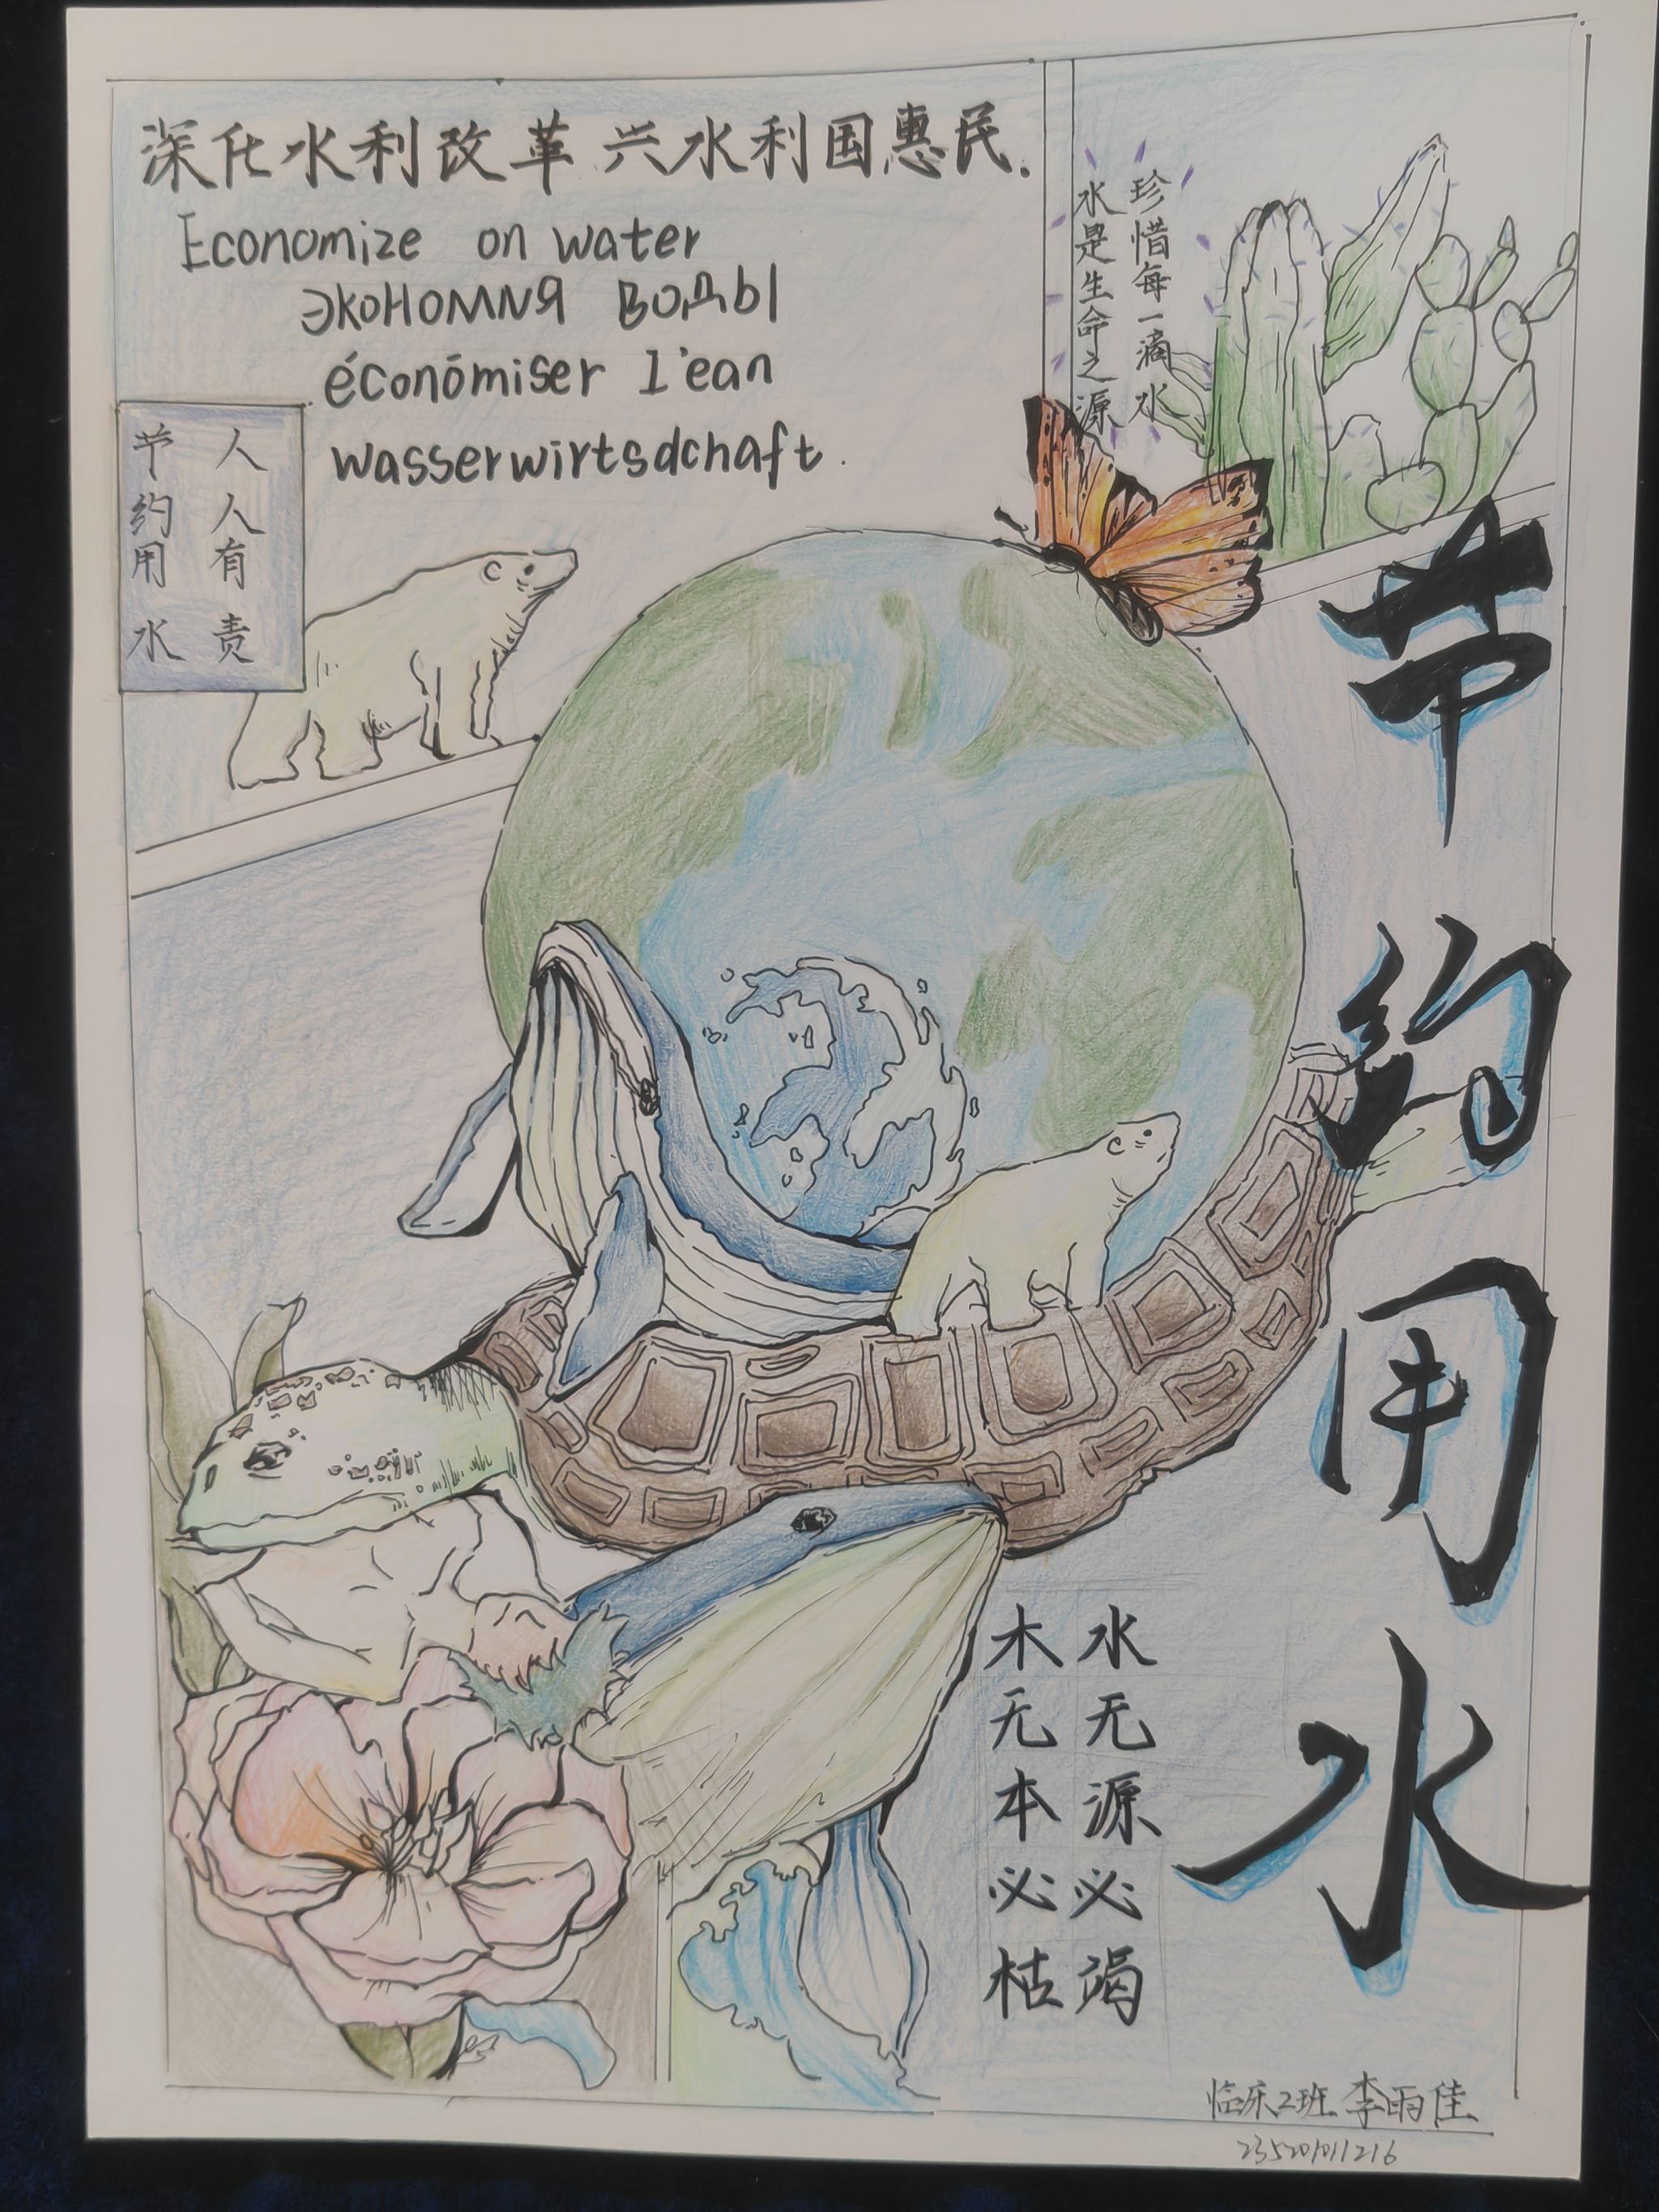 深化水利改革 兴水利国惠民.
Economize on water
экономия воды
économiser l'ean
wasserwirtsdchaft.
珍惜每一滴水
水是生命之源
人人有责
节约用水
节约用水
水无源必竭
木无本必枯
临床2班 李雨佳
235201011216